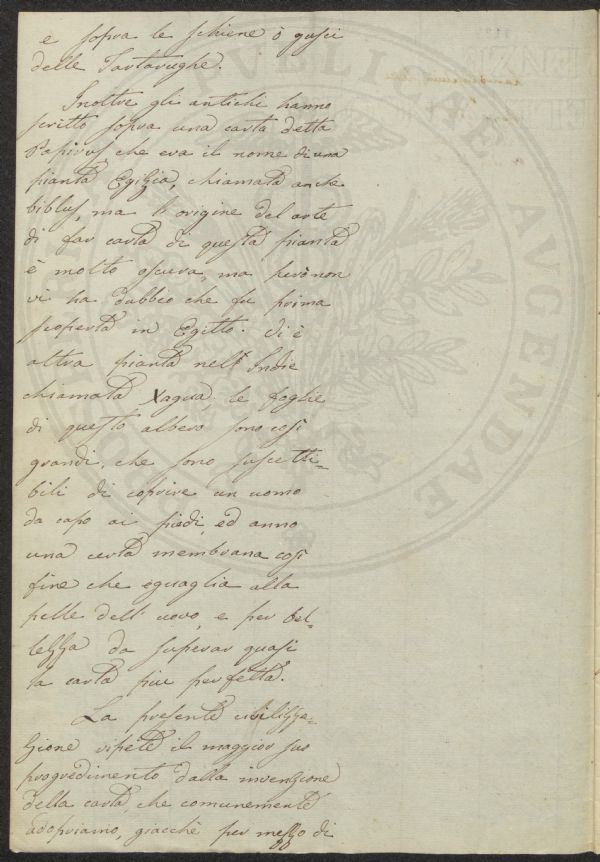 e sopra le schiene ò gusci
delle Tartarughe.
Inoltre gli antichi hanno
scritto sopra una carta detta
Papirus, che era il nome di una
pianta Egizia, chiamata anche
biblus, ma l'origine del arte
di far carta di questa pianta
è molto oscura, ma però non
vi ha dubbio che fu prima
scoperta in Egitto. Vi è
altra pianta nell'Indie
chiamata Xagua, le foglie
di questo albero sono così
grandi, che sono suscetti=
bili di coprire un uomo
da capo ai piedi, ed anno
una certa membrana così
fine che eguaglia alla
pelle dell'uovo, e per bel=
lezza da superar quasi
la carta piu perfetta.
La presente cibilizza=
zione ripete il maggior suo
progredimento dalla invenzione
della carta che comunemente
adopriamo, giacchè per mezzo di